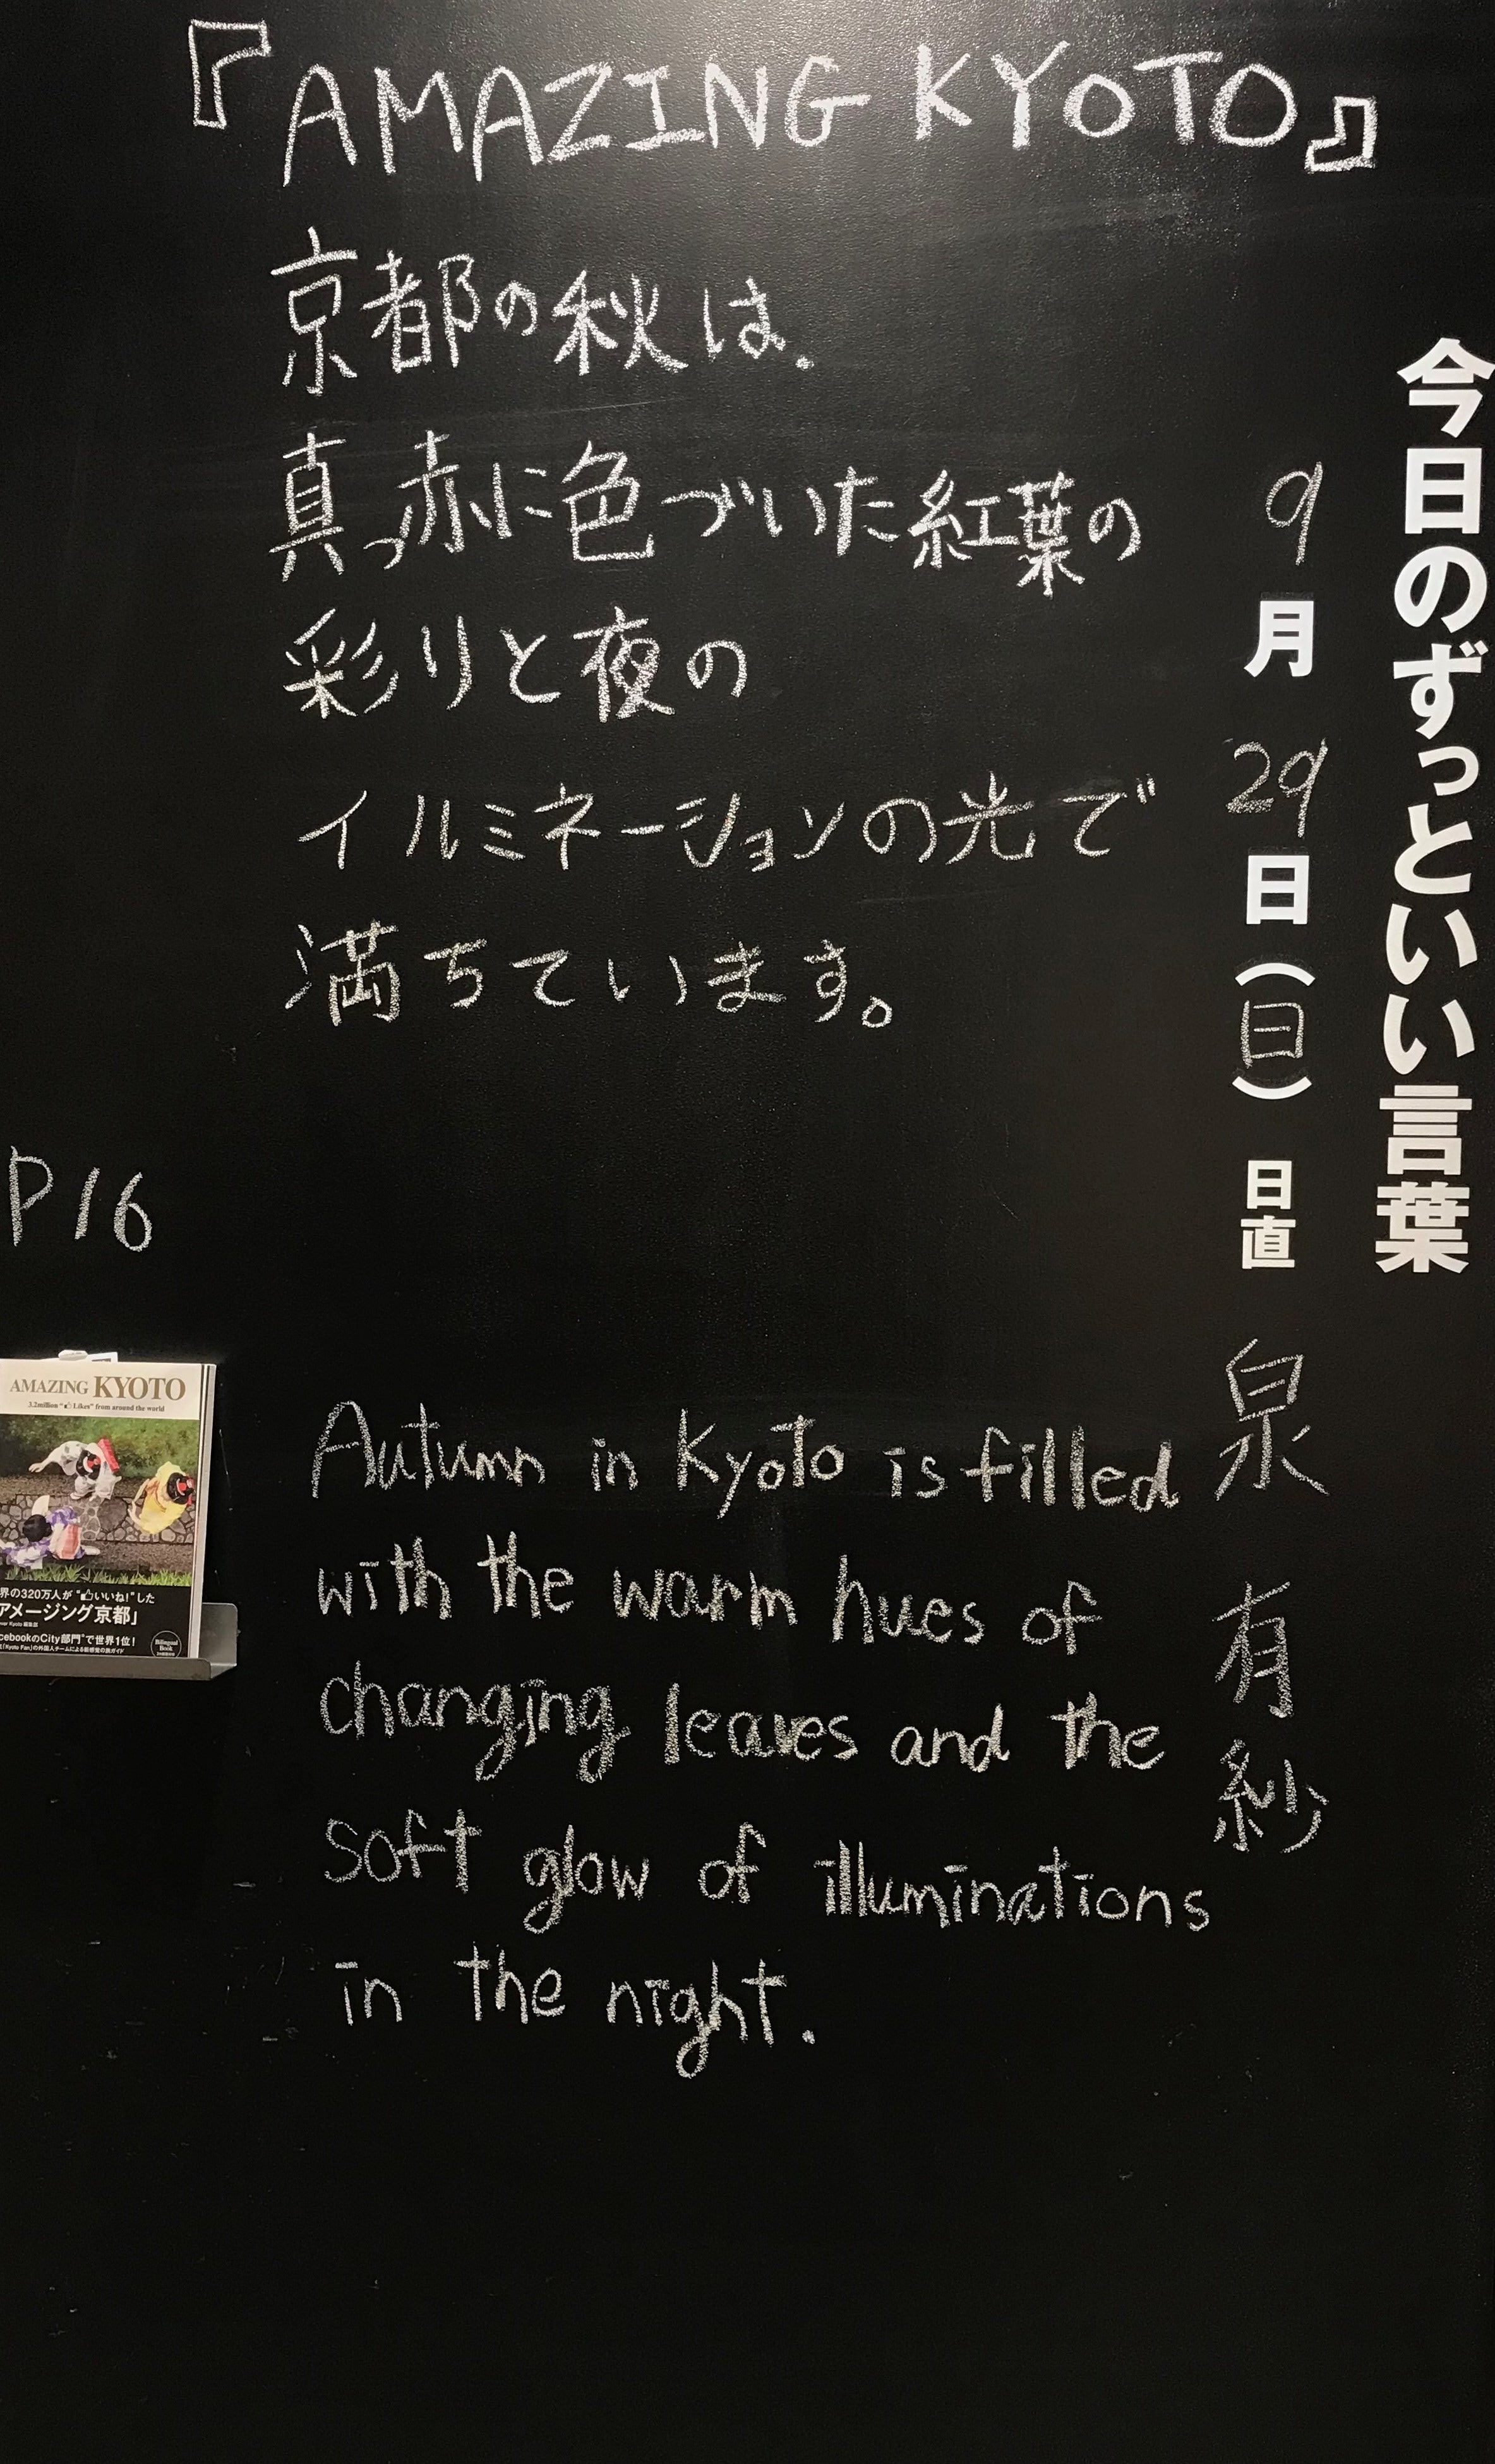 『AMAZING KYOTO』
京都の秋は、
真っ赤に色づいた紅葉の
彩りと夜の
イルミネーションの光で
満ちています。
今日のずっといい言葉
9月29日(日) 日直 泉有紗
P16
Autumn in Kyoto is filled
with the warm hues of
changing leaves and the
soft glow of illuminations
in the night.
AMAZING KYOTO
3.2million "Likes" from around the world
界の320万人が "いいね!" した
アメージング京都」
cebookのCity部門"で世界1位!
Bilingual
Book